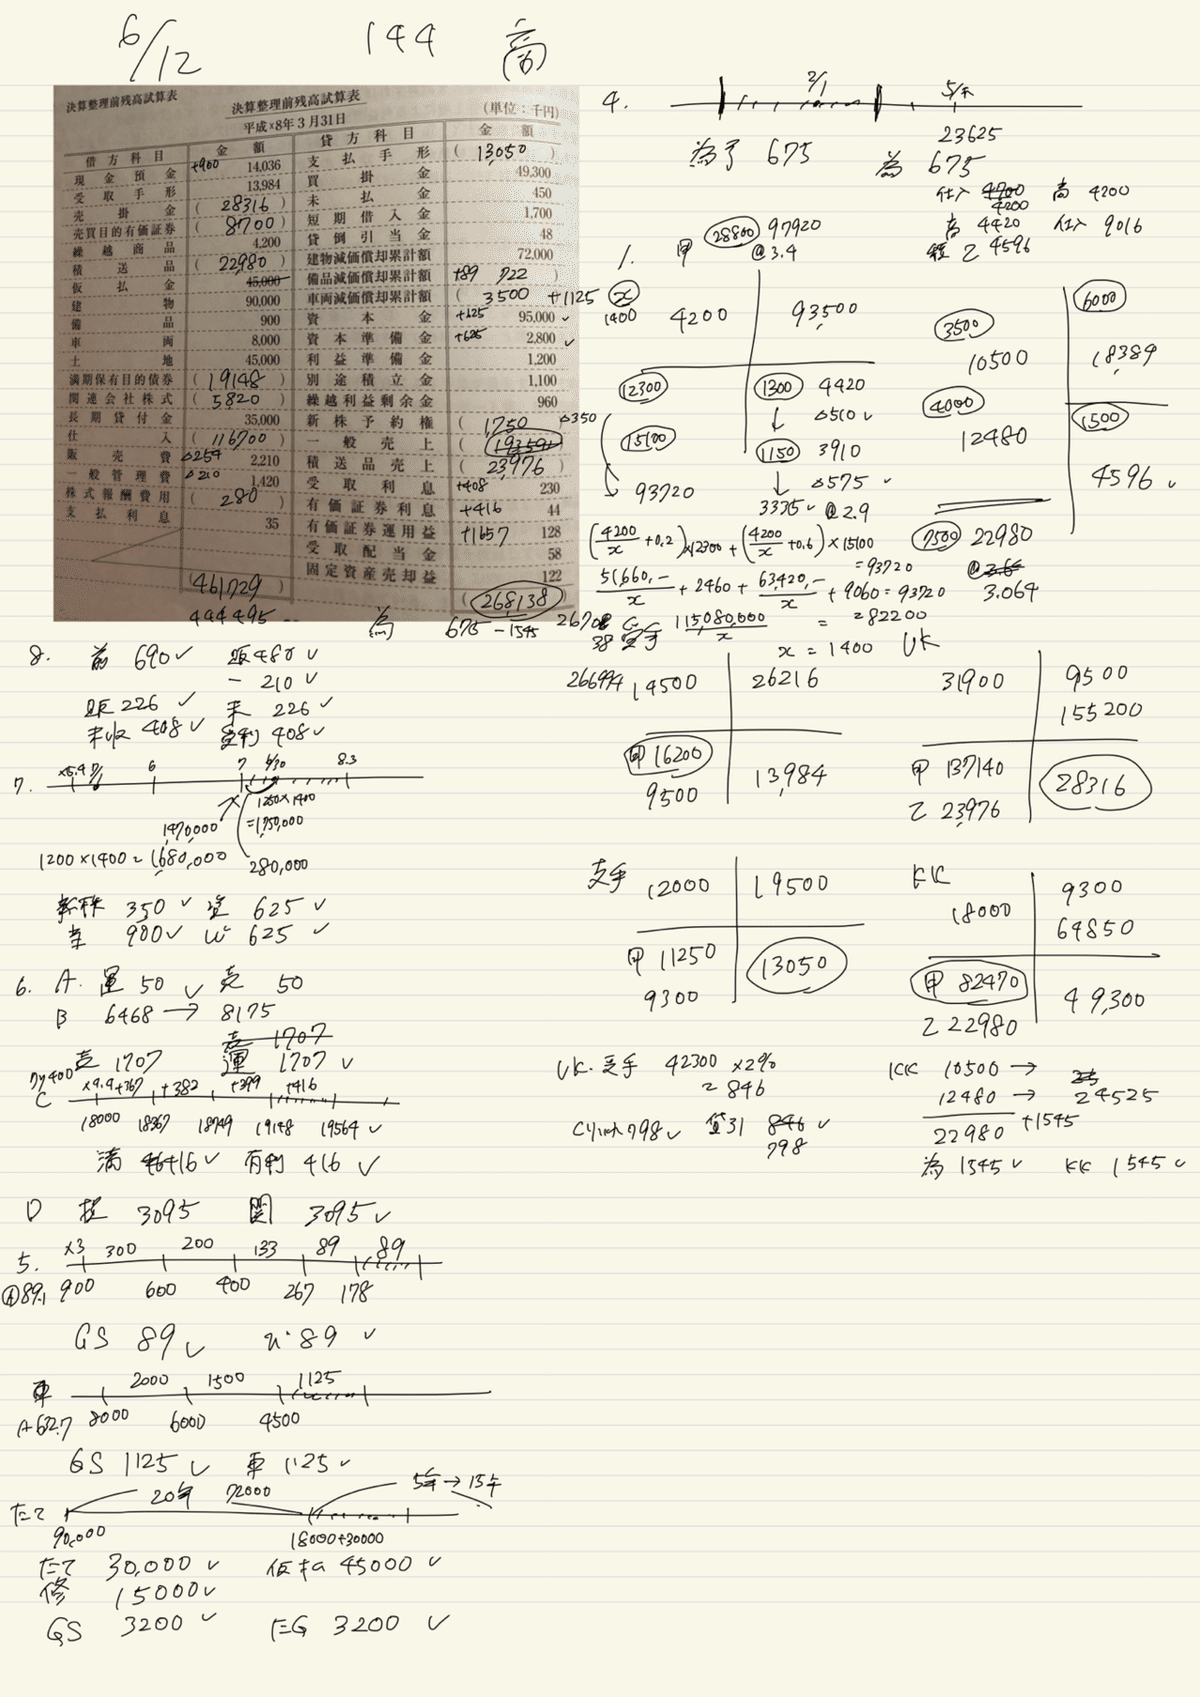 6/12 144 商
決算整理前残高試算表
決算整理前残高試算表
平成×8年3月31日
(単位：千円)
借方科目 金額 貸方科目 金額
現金預金 +900 14,036 支払手形 (13050)
受取手形 13,984 買掛金 49,300
売掛金 (28316) 未払金 450
売買目的有価証券 (8700) 短期借入金 1,700
繰越商品 4,200 貸倒引当金 48
積送品 (22980) 建物減価償却累計額 72,000
仮払金 45,000 備品減価償却累計額 +89 (722)
建物 90,000 車両減価償却累計額 (3500 +1125
備品 900 資本金 +625 95,000 ✓
車両 8,000 資本準備金 +625 2,800 ✓
土地 45,000 利益準備金 1,200
満期保有目的債券 (19148) 別途積立金 1,100
関連会社株式 (5,820) 繰越利益剰余金 960
長期貸付金 35,000 新株予約権 (1,750) △350
仕入 (116700) 一般売上 (193591)
販売費 △254 2,210 積送品売上 (23,976)
一般管理費 △210 1,420 受取利息 +408 230
株式報酬費用 (280) 有価証券利息 +416 44
支払利息 35 有価証券運用益 +1657 128
受取配当金 58
固定資産売却益 122
(461,729) (268,138)
494495
為 675 -1545
4. 2/1 5/末
23625
為予 675 為 675
仕入 4700 4200 商 4200
商 4420 仕入 9016
積乙 4596
1. 甲 28800 97920
@3.4
x 1400 4200 93,500
12300 1300 4420
△510 ✓
15100 1150 3910
△575 ✓
93720 3335 ✓ @2.9
3500 6000
10500 18389
4000 1500
12480 4596 ✓
7500 22980
3.064
(4200/x +0.2)×12300 + (4200/x +0.6)×15100
=93720
51,660,-/x + 2460 + 63,420,-/x + 9060 = 93720
115,080,000/x = 82200
x = 1400 UK
受手
266994 14500 26216
甲 16200 13,984
9500
31900 9500
155200
甲 137140 28316
乙 23,976
支手 12000 19500
甲 11250 13050
9300
KK 18000 9300
64850
甲 82470 49,300
乙 22980
UK. 受手 42300 ×2%
= 846
798 ✓ 貸引 846 ✓
798
KK 10500 →
12480 → 24525
22980 +1545
為 1545 ✓ KK 1545 ✓
8. 前 690 ✓ 販 480 ✓
一 210 ✓
販 226 ✓ 未 226 ✓
未収 408 ✓ 受利 408 ✓
7. 6 7 6/30 8.3
1250×1400
=1,750,000
1470,000
1200×1400=1,680,000 280,000
新株 350 ✓ 資 625 ✓
当 900 ✓ 625 ✓
6. A. 運 50 ✓ 売 50
B 6468 → 8175
売 1707
売 1707 運 1707 ✓
C ×4.4 +367 +382 +399 +416
18000 18367 18749 19148 19564 ✓
満 416 ✓ 有利 416 ✓
D 投 3095 関 3095 ✓
5. ×3 300 200 133 89 89
900 600 400 267 178
GS 89 ✓ 89 ✓
車 2000 1500 1125
8000 6000 4500
GS 1125 ✓ 車 1125 ✓
たて 20年 72000 5年→15年
90,000 18000+30000
たて 30,000 ✓ 仮払 45000 ✓
修 15000 ✓
GS 3200 ✓ 3200 ✓